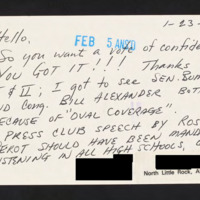 1-23-
Hello,
FEB 5 AM20
So you want a vote of confide
You GOT it!!! Thanks
& II; I got to see SEN. Bum
nd Cong. Bill Alexander Bot
ecause of "Oval Coverage".
Press Club Speech by Ros
erot should have been manda
istening in all high schools,
North Little Rock, A